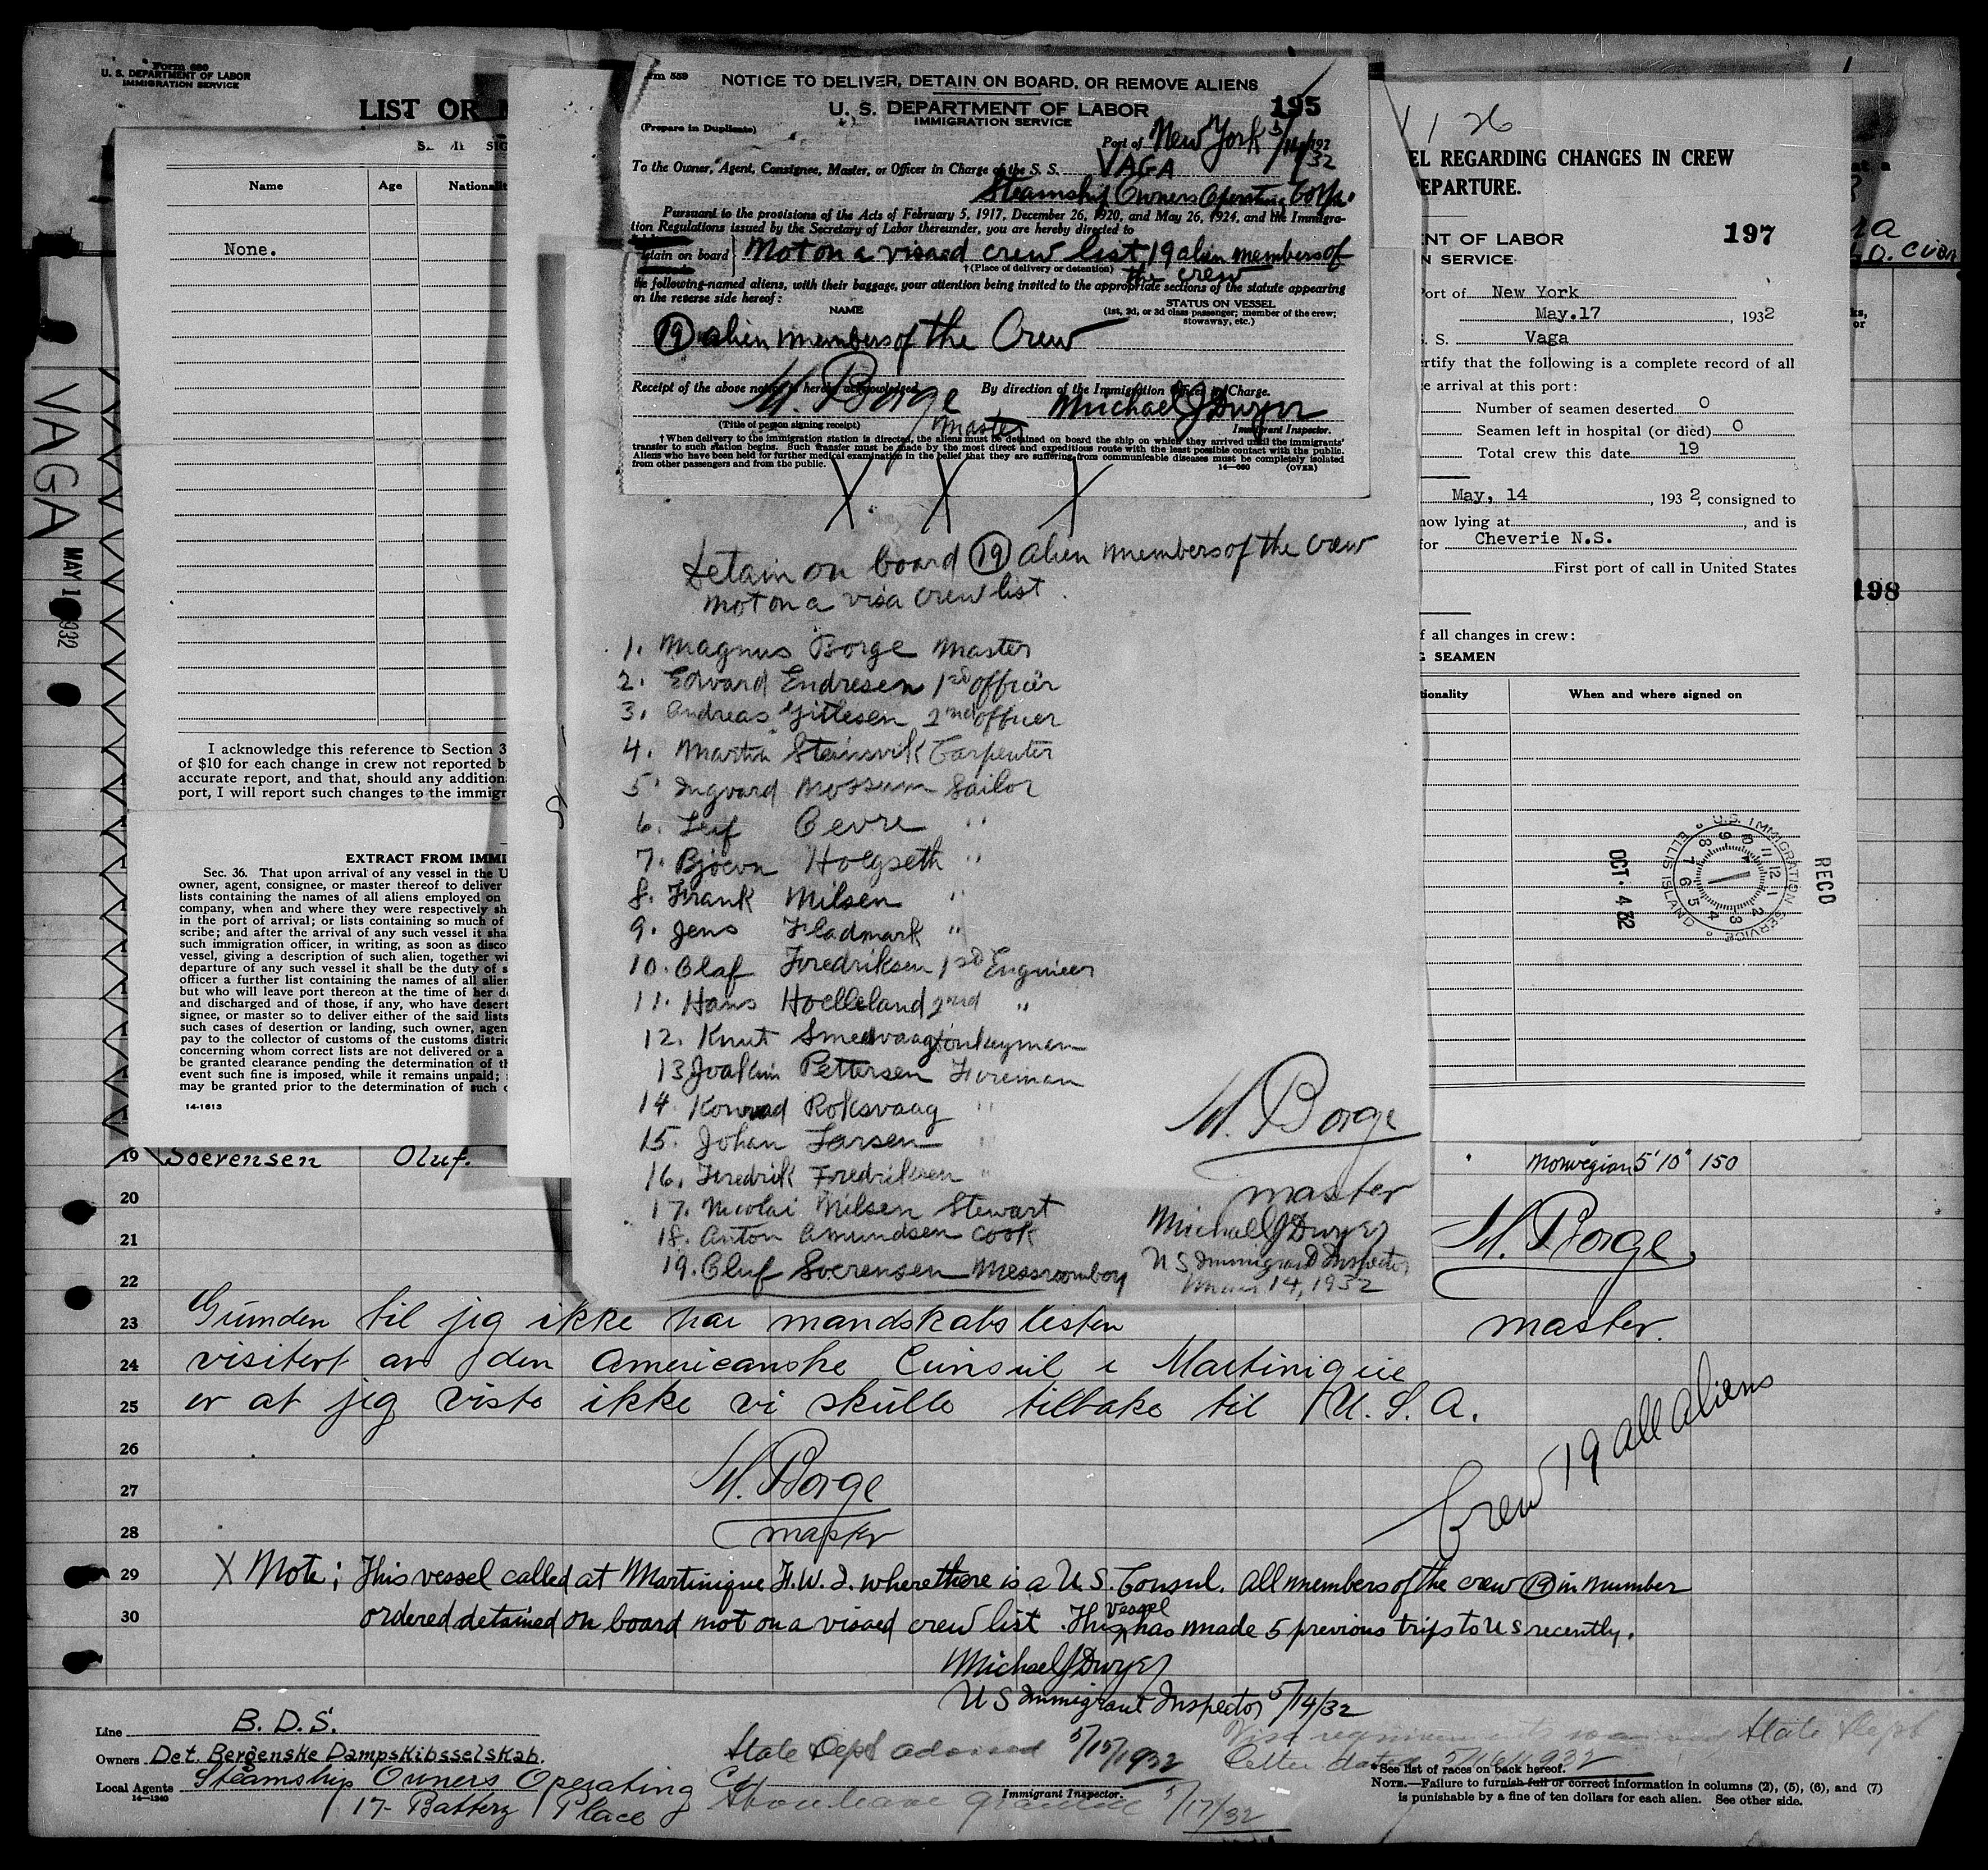 Form 680
U. S. DEPARTMENT OF LABOR
IMMIGRATION SERVICE
LIST OR
Name Age
None.
I acknowledge this reference to Section 3
of $10 for each change in crew not reported b
accurate report, and that, should any addition
port, I will report such changes to the immigr
EXTRACT FROM IMMI
Sec. 36. That upon arrival of any vessel in the U
owner, agent, consignee, or master thereof to deliver
lists containing the names of all aliens employed on
company, when and where they were respectively sh
in the port of arrival; or lists containing so much of
scribe; and after the arrival of any such vessel it sha
such immigration officer, in writing, as soon as disco
vessel, giving a description of such alien, together wi
departure of any such vessel it shall be the duty of s
officer a further list containing the names of all alien
but who will leave port thereon at the time of her de
and discharged and of those, if any, who have desert
signee, or master so to deliver either of the said lists
such cases of desertion or landing, such owner, agen
pay to the collector of customs of the customs distric
concerning whom correct lists are not delivered or a
be granted clearance pending the determination of th
event such fine is imposed, while it remains unpaid;
may be granted prior to the determination of such
14-1613
VAGA
MAY 1 1932
rm 559
NOTICE TO DELIVER, DETAIN ON BOARD, OR REMOVE ALIENS
U. S. DEPARTMENT OF LABOR 195
IMMIGRATION SERVICE
(Prepare in Duplicate)
Port of New York 5/14/32
To the Owner, Agent, Consignee, Master, or Officer in Charge of the S. S. VAGA
Steamship Owners Operating Corpn.
Pursuant to the provisions of the Acts of February 5, 1917, December 26, 1920, and May 26, 1924, and the Immigra-
tion Regulations issued by the Secretary of Labor thereunder, you are hereby directed to
detain on board Not on a visaed crew list, 19 alien members of
†(Place of delivery or detention) the crew
the following-named aliens, with their baggage, your attention being invited to the appropriate sections of the statute appearing
on the reverse side hereof:
NAME STATUS ON VESSEL
(1st, 2d, or 3d class passenger; member of the crew;
stowaway, etc.)
19 alien members of the Crew
Receipt of the above notice is hereby acknowledged. By direction of the Immigration Officer in Charge.
M. Borge Michael J Dwyer
Master
(Title of person signing receipt) Immigrant Inspector.
†When delivery to the immigration station is directed, the aliens must be detained on board the ship on which they arrived until the immigrants'
transfer to such station begins. Such transfer must be made by the most direct and expeditious route with the least possible contact with the public.
Aliens who have been held for further medical examination in the belief that they are suffering from communicable diseases must be completely isolated
from other passengers and from the public.
14-660 (OVER)
X X X
Detain on board 19 alien members of the crew
not on a visa crew list.
1. Magnus Borge Master
2. Edvard Endresen 1st officer
3. Andreas Gittesen 2nd officer
4. Martin Steinsvik Carpenter
5. Ingvard Mossum Sailor
6. Leif Oevre "
7. Bjoern Holgseth "
8. Frank Nilsen "
9. Jens Fladmark "
10. Olaf Fredriksen 1st Engineer
11. Hans Hoelleland 2nd "
12. Knut Smedvaag Donkeyman
13. Joakim Pettersen Fireman
14. Konrad Roksvaag "
15. Johan Larsen "
16. Fredrik Fredriksen "
17. Nicolai Nilsen Stewart
18. Anton Amundsen Cook
19. Oluf Soerensen Messroomboy
M. Borge
master
Michael J Dwyer
U S Immigrant Inspector
May 14, 1932
1 26
EL REGARDING CHANGES IN CREW
EPARTURE.
NT OF LABOR 197
N SERVICE
ort of New York
May.17, 1932
S. S. Vaga
ertify that the following is a complete record of all
e arrival at this port:
Number of seamen deserted 0
Seamen left in hospital (or died) 0
Total crew this date 19
May, 14, 1932, consigned to
now lying at , and is
for Cheverie N.S.
First port of call in United States
f all changes in crew:
SEAMEN
tionality When and where signed on
U.S. IMMIGRATION SERVICE
ELLIS ISLAND
OCT 4 32
RECD
198
19 Soerensen Oluf. Norwegian 5'10" 150
20
21
22
M. Borge
master.
23 Grunden til jeg ikke har mandskabslisten
24 visitert av den Americanske Cunsul i Martinique
25 er at jeg viste ikke vi skulle tilbake til U.S.A.
26
27
28
M. Borge
master
Crew 19 all aliens
29 X Note; This vessel called at Martinique F.W.I. where there is a U S. Consul. All members of the crew 19 in number
30 ordered detained on board not on a visaed crew list. This vessel has made 5 previous trips to U S recently.
Michael J Dwyer
U S Immigrant Inspector 5/14/32
Line B. D. S.
Owners Det. Bergenske Dampskibsselskab.
Local Agents Steamship Owners Operating Co.
14-1240
17- Battery Place
State Dept advised 5/15/1932
Immigrant Inspector.
Shore leave granted 5/17/32
Visa requirements waived State Dept
Letter dated 5/16/1932
*See list of races on back hereof.
NOTE.—Failure to furnish full or correct information in columns (2), (5), (6), and (7)
is punishable by a fine of ten dollars for each alien. See other side.